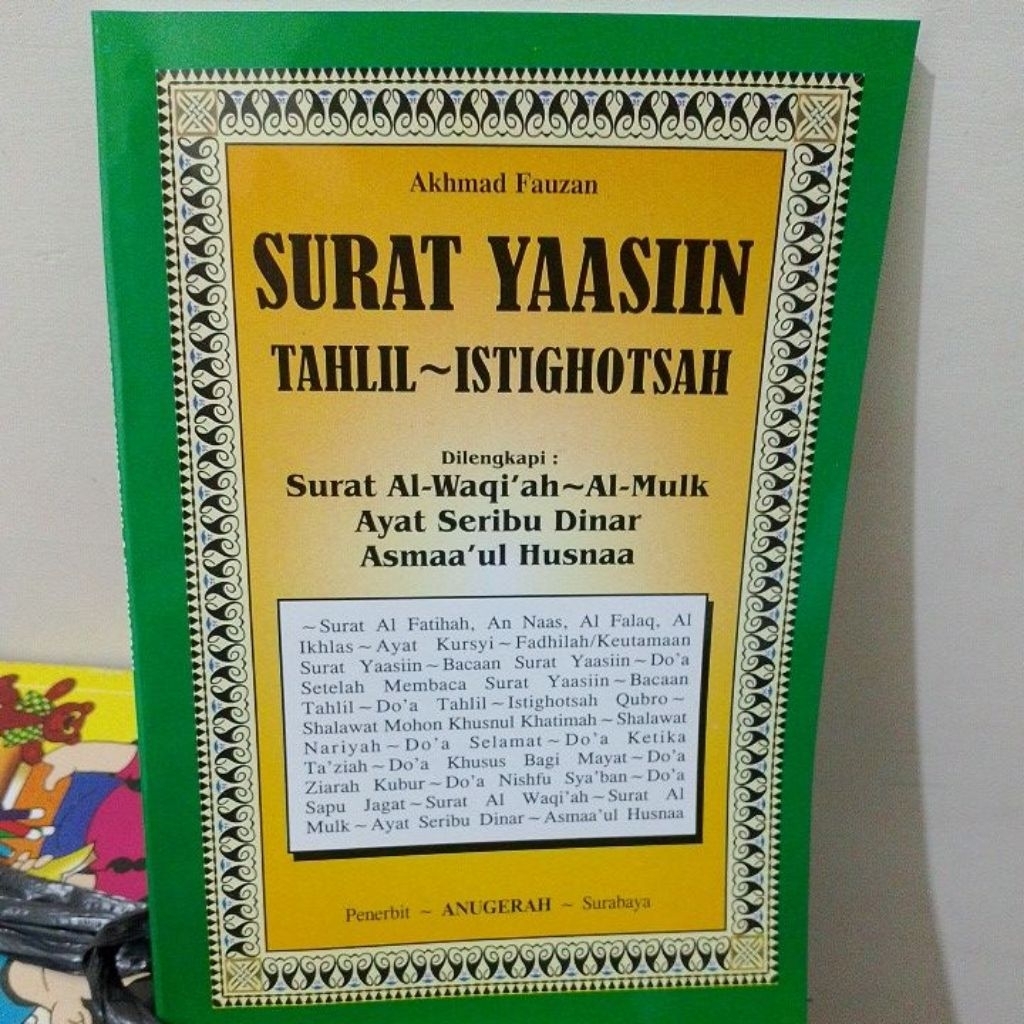 Akhmad Fauzan
SURAT YAASIIN
TAHLIL~ISTIGHOTSAH
Dilengkapi :
Surat Al-Waqi'ah~Al-Mulk
Ayat Seribu Dinar
Asmaa'ul Husnaa
~Surat Al Fatihah, An Naas, Al Falaq, Al
Ikhlas~Ayat Kursyi~Fadhilah/Keutamaan
Surat Yaasiin~Bacaan Surat Yaasiin~Do'a
Setelah Membaca Surat Yaasiin~Bacaan
Tahlil~Do'a Tahlil~Istighotsah Qubro~
Shalawat Mohon Khusnul Khatimah~Shalawat
Nariyah~Do'a Selamat~Do'a Ketika
Ta'ziah~Do'a Khusus Bagi Mayat~Do'a
Ziarah Kubur~Do'a Nishfu Sya'ban~Do'a
Sapu Jagat~Surat Al Waqi'ah~Surat Al
Mulk~Ayat Seribu Dinar~Asmaa'ul Husnaa
Penerbit ~ ANUGERAH ~ Surabaya